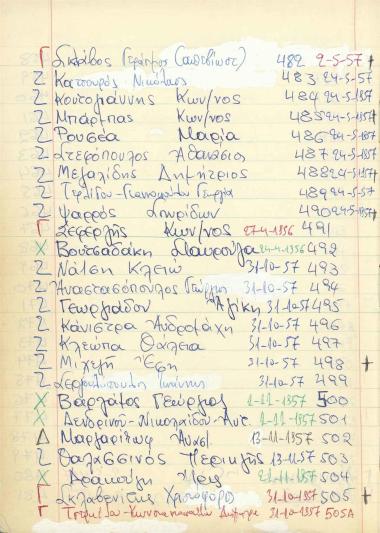 Γ Σκιάβος Γεράσιμος (απεβίωσε) 482 2-5-57 +
Ζ Κατσουρός Νικόλαος 483 24-5-57
Ζ Κουτσογιάννης Κων/νος 484 24-5-1957
Ζ Μπάρμπας Κων/νος 485 24-5-1957
Ζ Ρουσέα Μαρία 486 24-5-57
Ζ Στεφόπουλος Αθανάσιος 487 24-5-57
Ζ Μεγαλίδης Δημήτριος 488 24-5-1957
Ζ Γεωργία 489 24-5-57
Ζ Ψαρρός Σπυρίδων 490 24-5-1957
Γ Σεφερλής Κων/νος 27-4-1956 491
Χ Βουτσαδάκη Σταυρούλα 24-4-1956 492
Ζ Νάτση Κλειώ 31-10-57 493
Ζ Αναστασόπουλος Γεώργιος 31-10-57 494
Ζ Γεωργιάδου Αλίκη 31-10-57 495
Ζ Κάνιστρα Ανδρομάχη 31-10-57 496
Ζ Κλεώπα Θάλεια 31-10-57 497
Ζ Μιχελή Έφη 31-10-57 498 +
Ζ Ιωάννης 31-10-57 499
Χ Βαρλάμος Γεώργιος 1-11-1957 500
Χ Δενδρινού-Νικολαΐδου Αντ. 1-11-1957 501
Δ 13-11-1957 502
Ζ Θαλασσινός Περικλής 13-11-57 503
Χ Αρακούλη Ίρις 21-11-1957 504
Γ Σκλαβενίτης Χριστόφορος 31-10-1957 505 +
Γ 31-10-1957 505Α